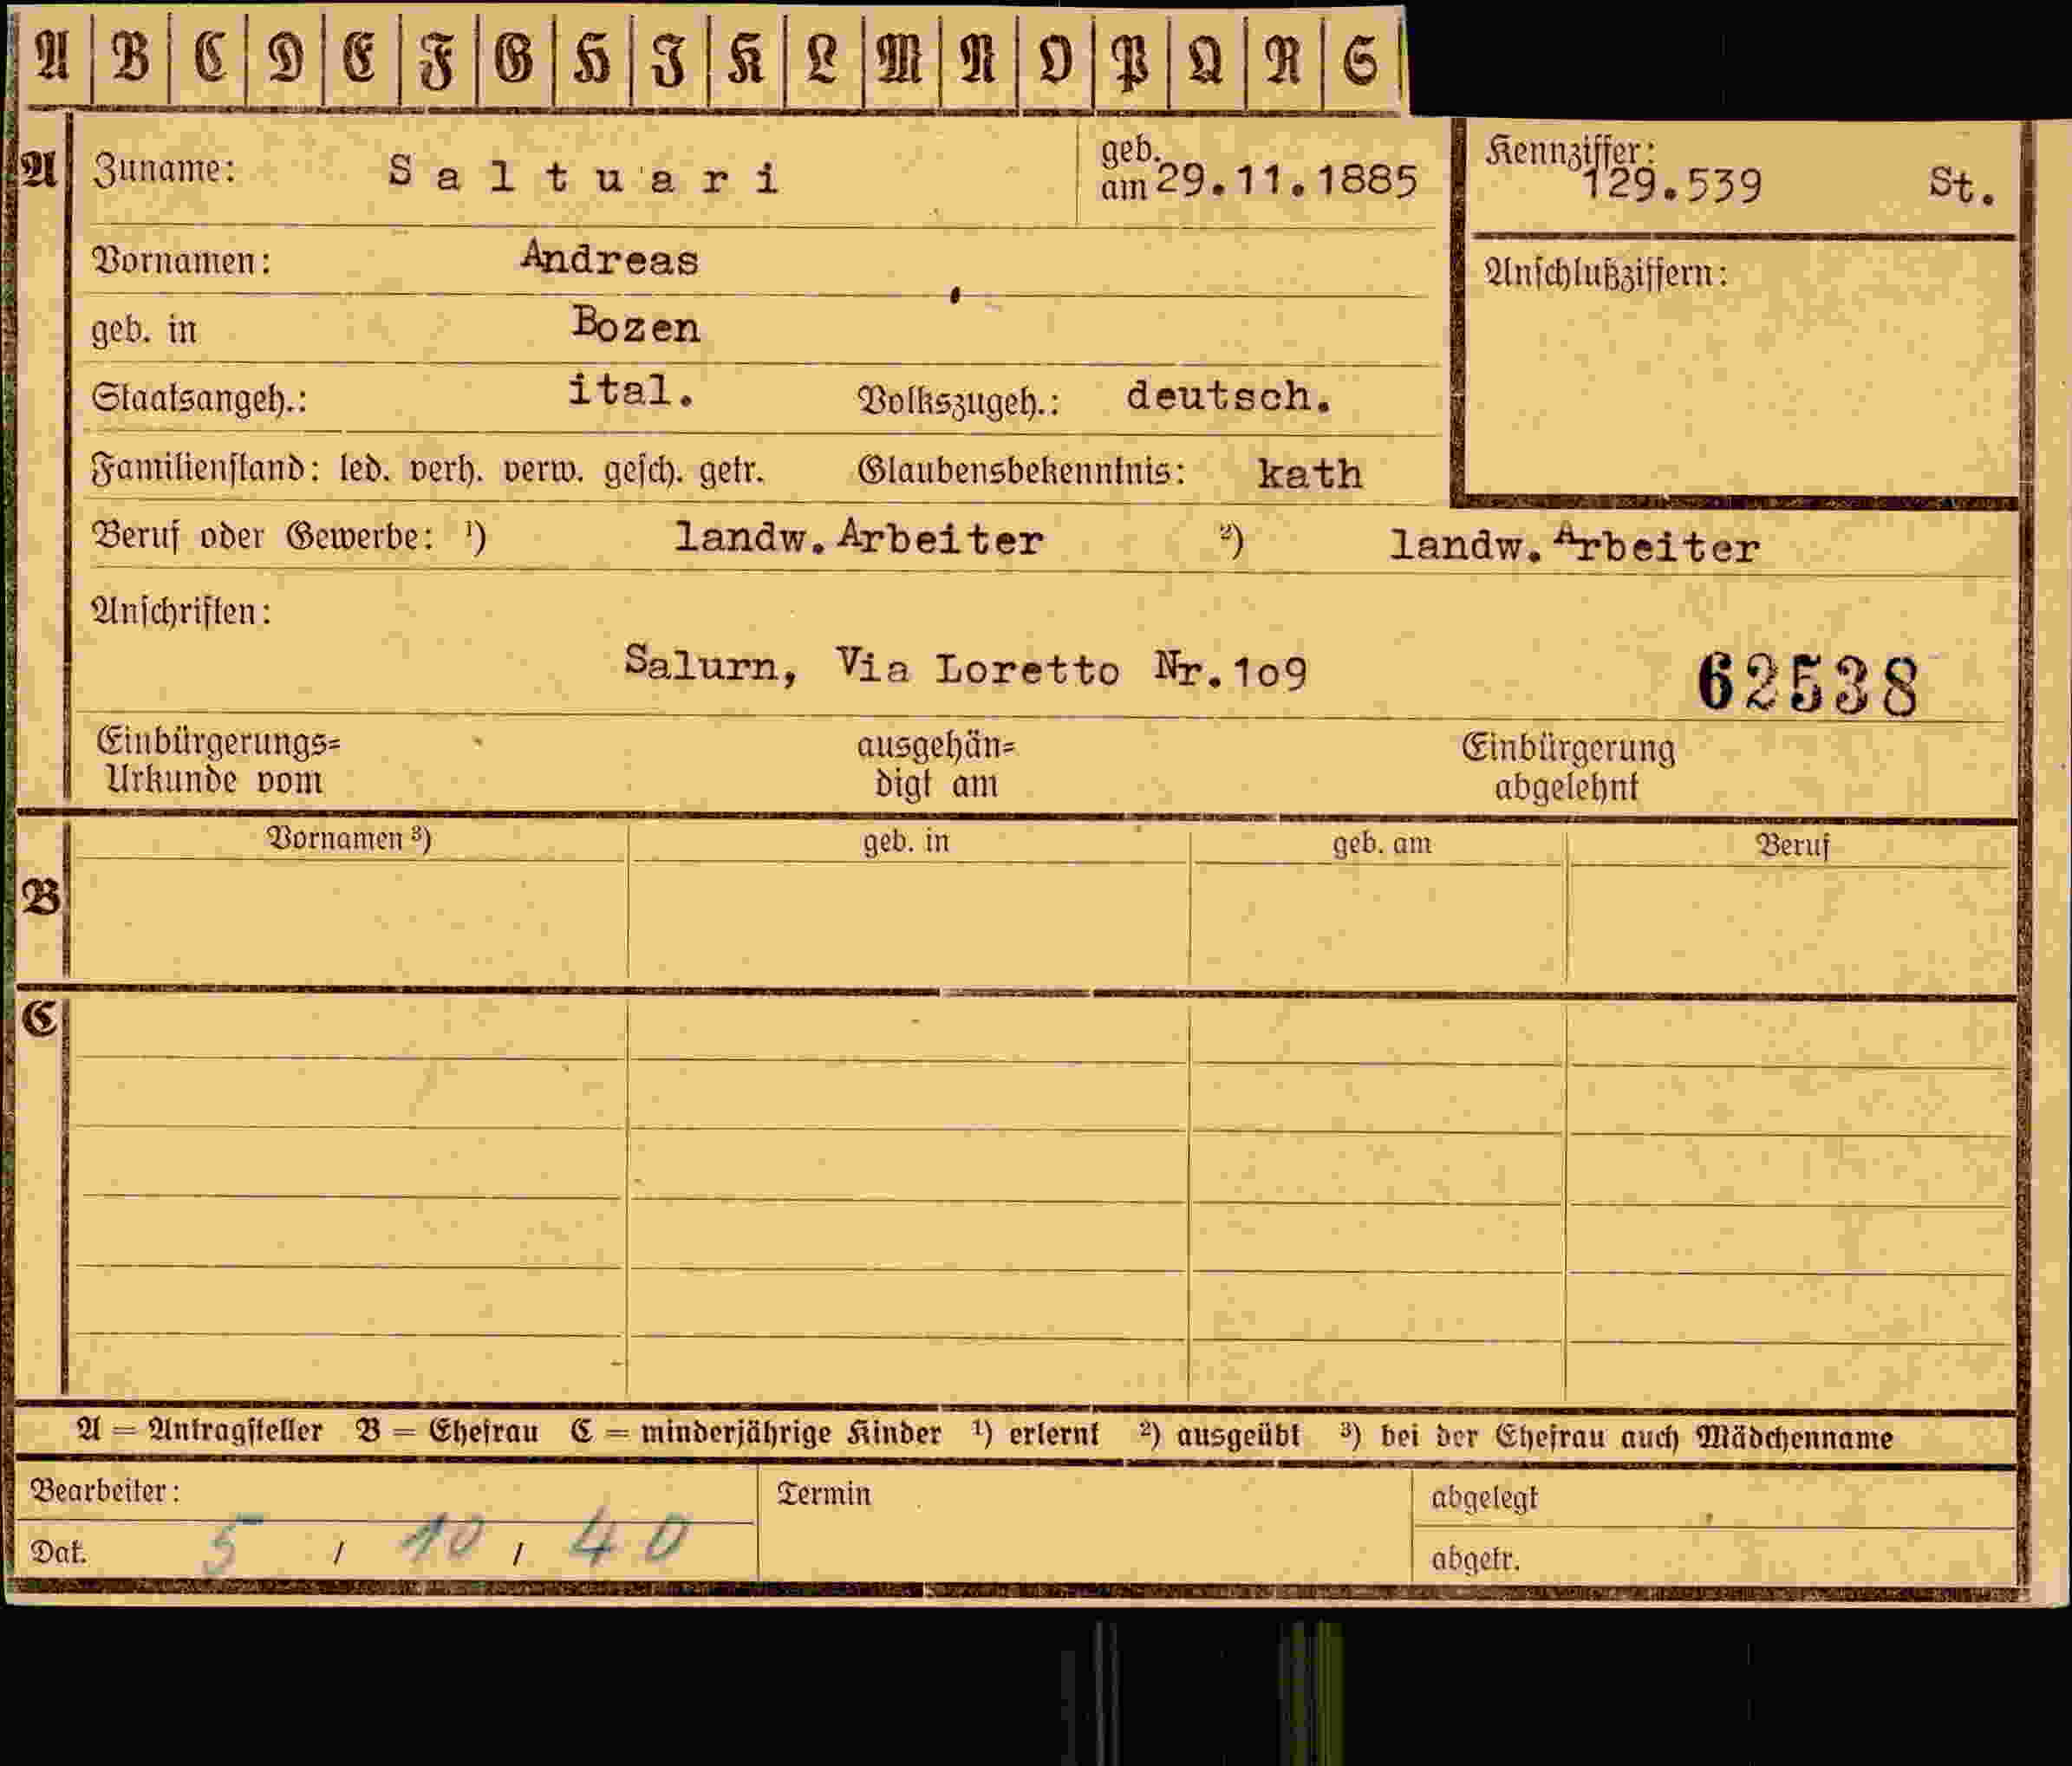 A B C D E F G H J K L M N O P Q R S
A Zuname: Saltuari geb. am 29.11.1885 Kennziffer: 129.539 St.
Vornamen: Andreas Anschlußziffern:
geb. in Bozen
Staatsangeh.: ital. Volkszugeh.: deutsch.
Familienstand: led. verh. verw. gesch. getr. Glaubensbekenntnis: kath
Beruf oder Gewerbe: ¹) landw. Arbeiter ²) landw. Arbeiter
Anschriften:
Salurn, Via Loretto Nr.109 62538
Einbürgerungs= ausgehän= Einbürgerung
Urkunde vom digt am abgelehnt
Vornamen ³) geb. in geb. am Beruf
B
C
A = Antragsteller B = Ehefrau C = minderjährige Kinder ¹) erlernt ²) ausgeübt ³) bei der Ehefrau auch Mädchenname
Bearbeiter: Termin abgelegt
Dat. 5 / 10 / 40 abgetr.